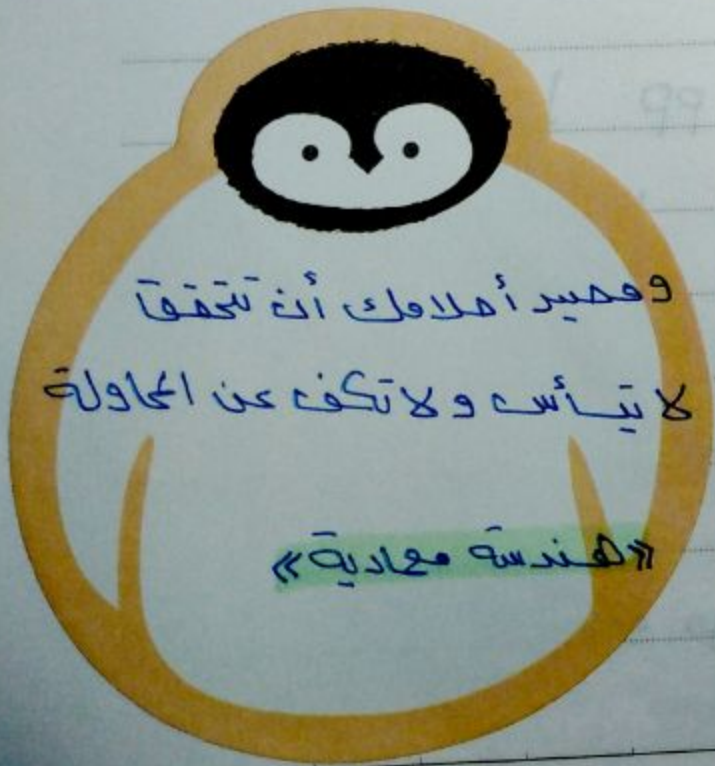 ومصير أحلامك أن تتحقق
لا تيأس ولا تكف عن المحاولة
«هندسة معمارية»